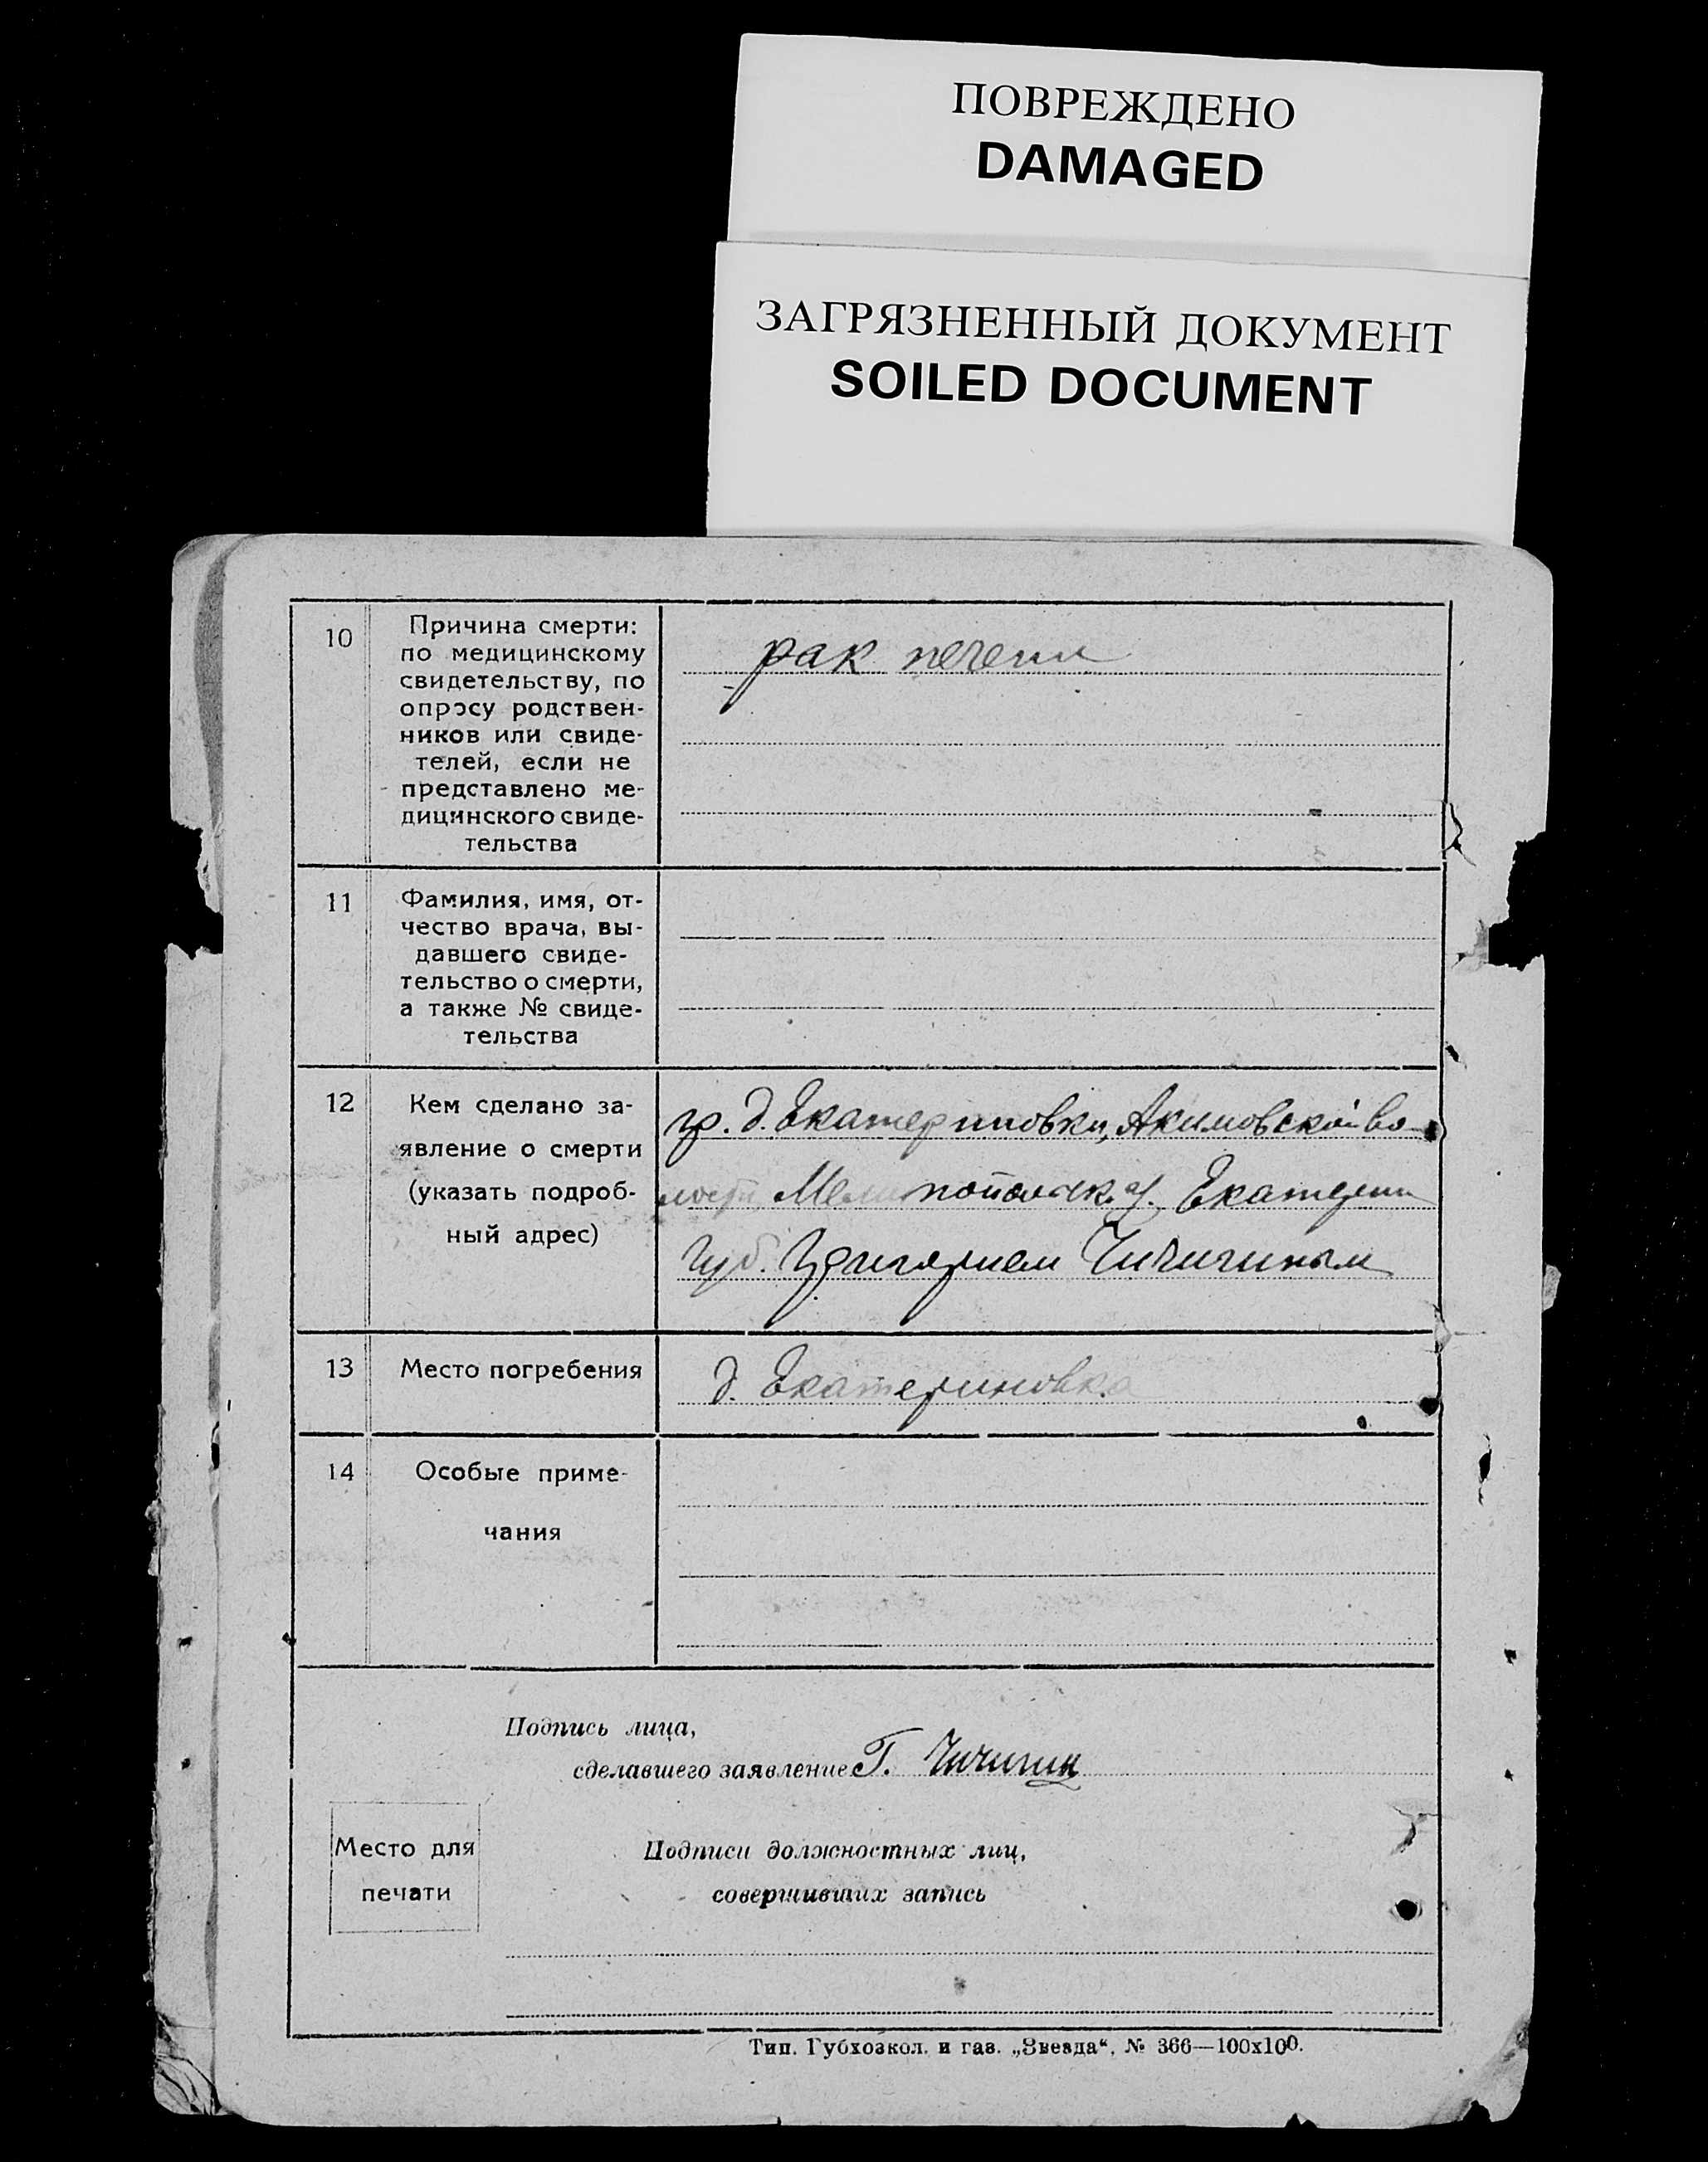 ПОВРЕЖДЕНО
DAMAGED
ЗАГРЯЗНЕННЫЙ ДОКУМЕНТ
SOILED DOCUMENT
10
Причина смерти:
по медицинскому
свидетельству, по
опросу родствен-
ников или свиде-
телей, если не
представлено ме-
дицинского свиде-
тельства
рак печени
11
Фамилия, имя, от-
чество врача, вы-
давшего свиде-
тельство о смерти,
а также № свиде-
тельства
12
Кем сделано за-
явление о смерти
(указать подроб-
ный адрес)
гр. д. Екатериновки, Акимовской во-
лости, Мелитопольск. у. Екатерин
Губ. Григорием Чичигиным
13
Место погребения
д. Екатериновка
14
Особые приме-
чания
Подпись лица,
сделавшего заявление Г. Чичигин
Место для
печати
Подписи должностных лиц,
совершивших запись
Тип. Губхозкол. и газ. „Звезда“, № 366—100х100.